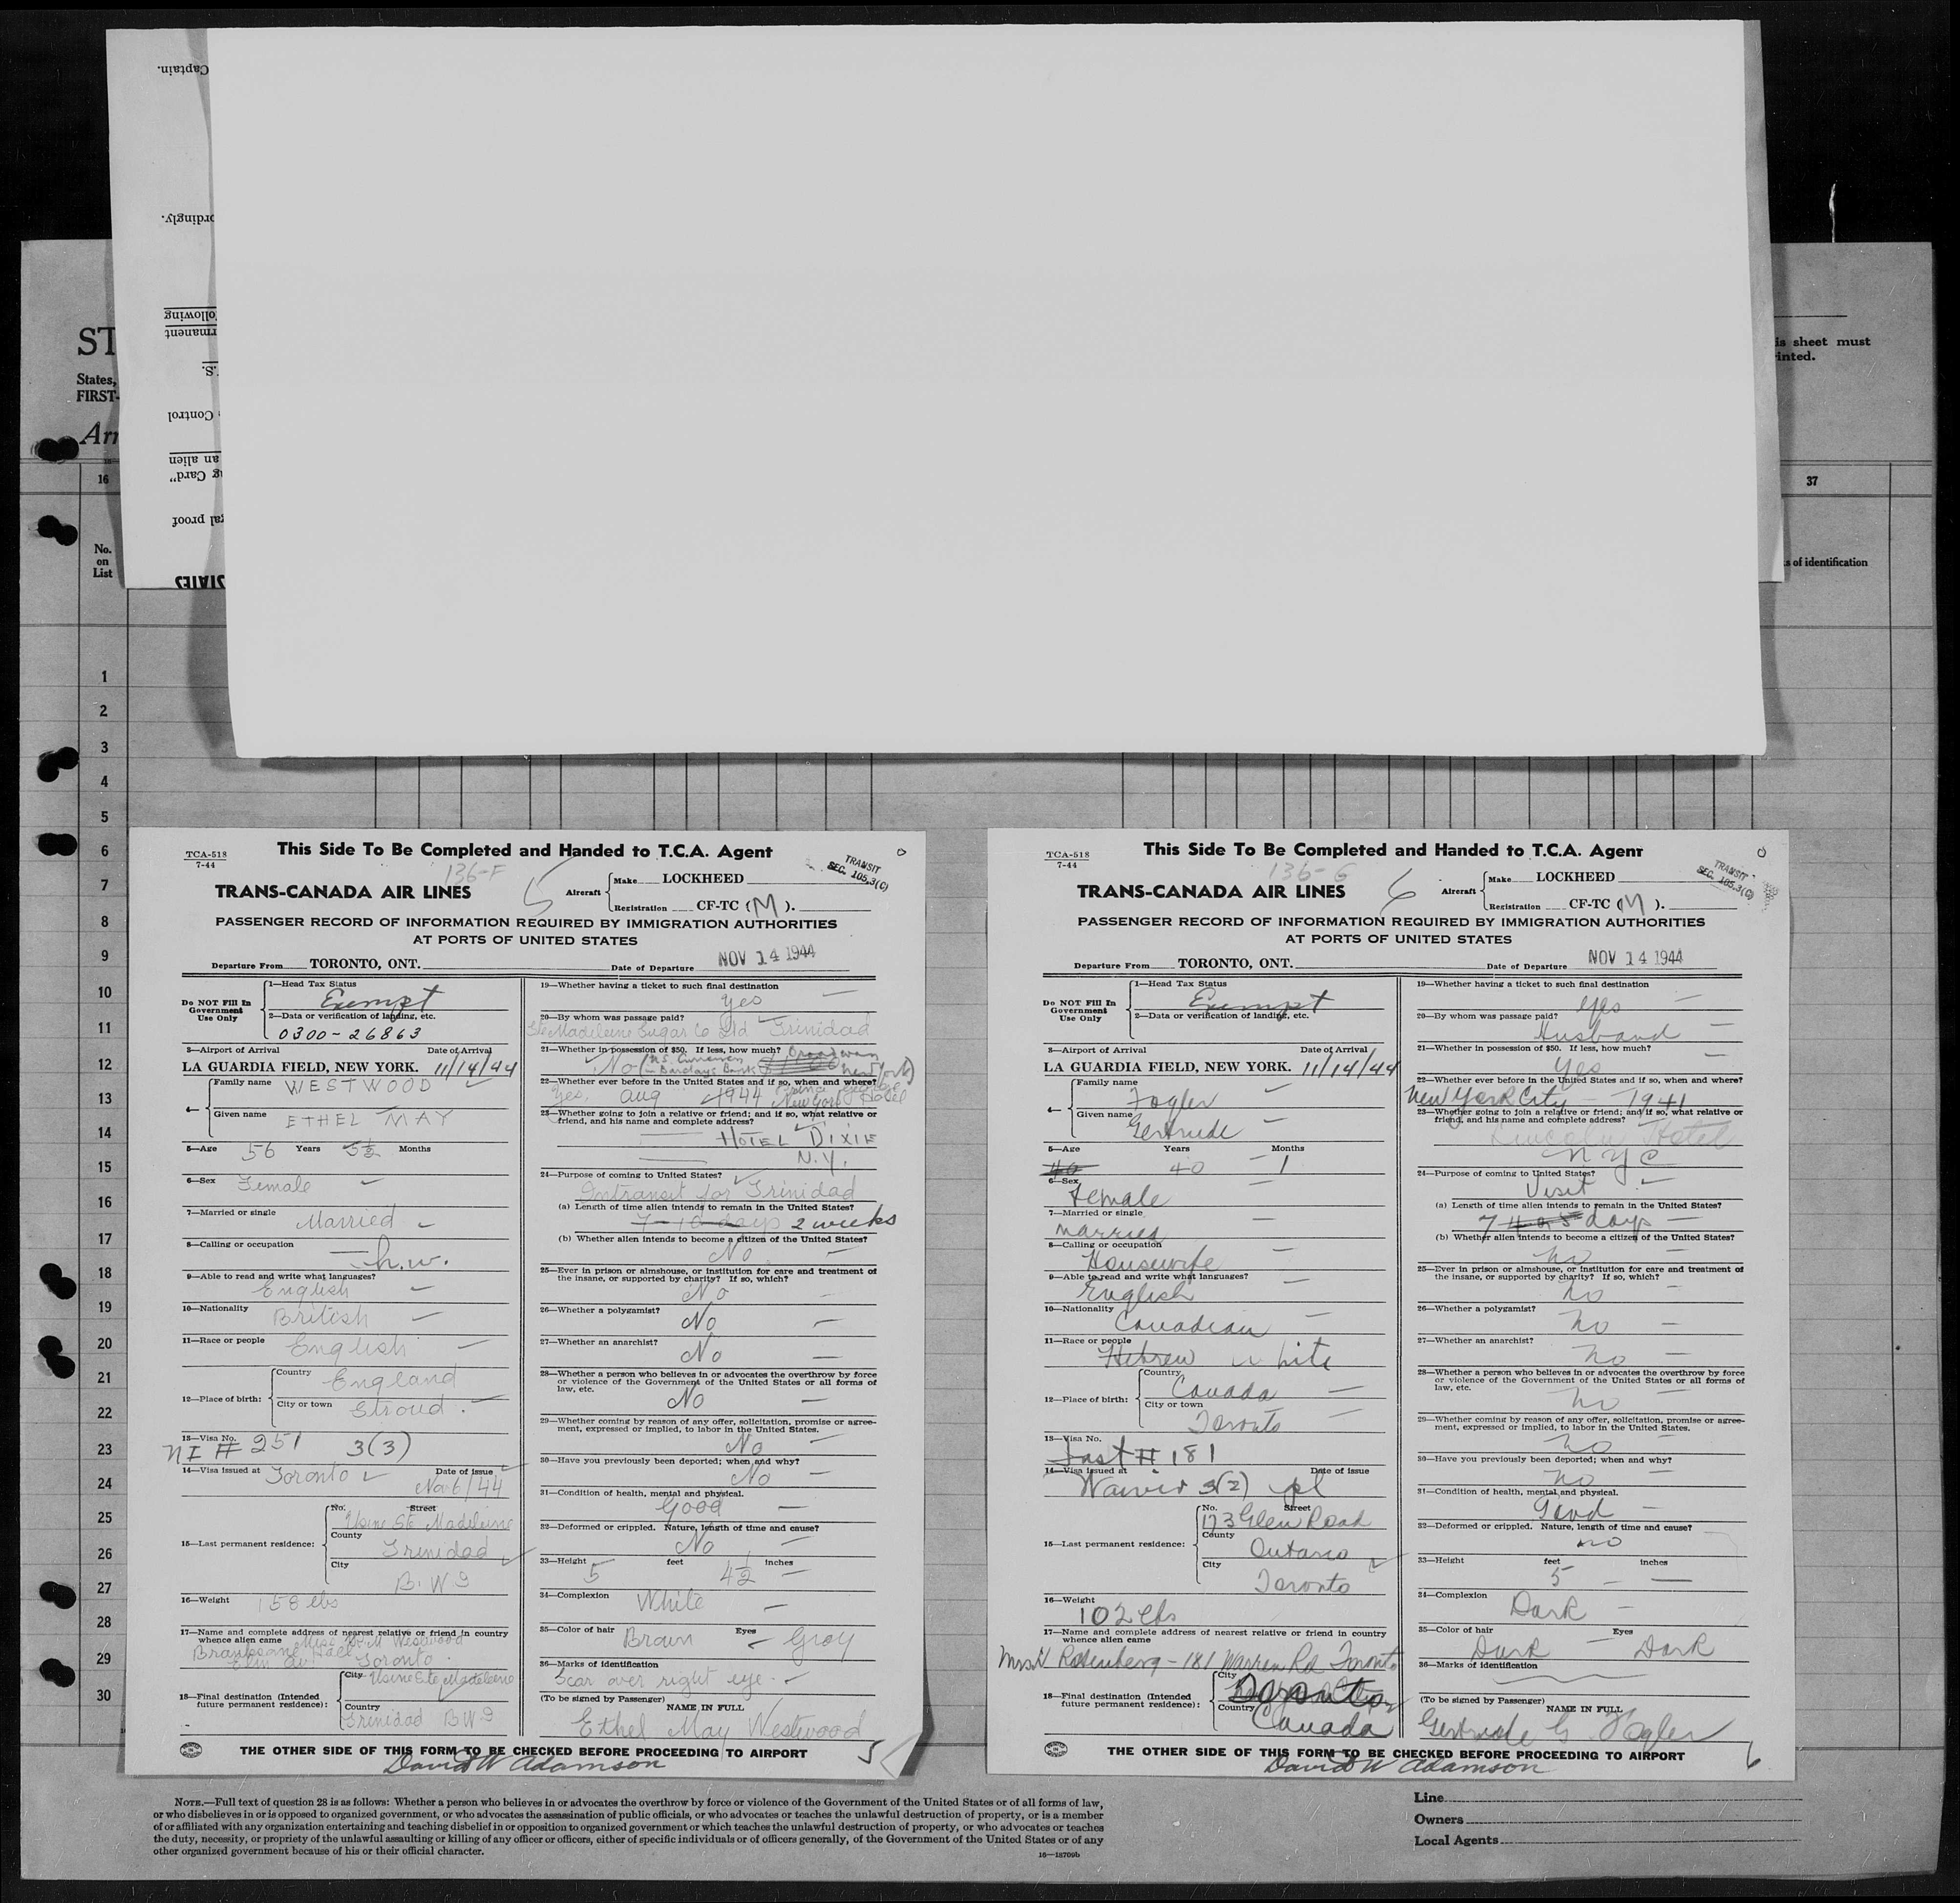 Captain.
ordingly.
ollowing
rmanent
.S.
Control
an alien
g Card"
gal proof
STATES
ST
States,
FIRST-
Arr
is sheet must
rinted.
16
37
No.
on
List
s of identification
1
2
3
4
5
6
7
8
9
10
11
12
13
14
15
16
17
18
19
20
21
22
23
24
25
26
27
28
29
30
TCA-518
7-44
This Side To Be Completed and Handed to T.C.A. Agent
136-F
5
TRANS-CANADA AIR LINES
Aircraft
Make LOCKHEED
Registration CF-TC (M).
TRANSIT
SEC. 105.3(C)
PASSENGER RECORD OF INFORMATION REQUIRED BY IMMIGRATION AUTHORITIES
AT PORTS OF UNITED STATES
Departure From TORONTO, ONT.
Date of Departure NOV 14 1944
Do NOT Fill In
Government
Use Only
1—Head Tax Status
Exempt
2—Data or verification of landing, etc.
0300-26863
3—Airport of Arrival Date of Arrival
LA GUARDIA FIELD, NEW YORK. 11/14/44
4— Family name WESTWOOD
Given name ETHEL MAY
5—Age 56 Years 5½ Months
6—Sex Female
7—Married or single Married
8—Calling or occupation h.w.
9—Able to read and write what languages?
English
10—Nationality British
11—Race or people English
12—Place of birth: Country England
City or town Stroud.
13—Visa No.
NI # 251 3(3)
14—Visa issued at Toronto Date of issue Nov 6/44
15—Last permanent residence: No. Street
Usine Ste Madeleine
County Trinidad
City B.W.I
16—Weight 158 lbs
17—Name and complete address of nearest relative or friend in country
whence alien came Miss Westwood
Branksome Hall
Elm Av. Toronto.
18—Final destination (Intended
future permanent residence): City Usine Ste Madeleine
Country Trinidad B.W.I
19—Whether having a ticket to such final destination
yes
20—By whom was passage paid?
Ste Madeleine Sugar Co Ltd Trinidad
21—Whether in possession of $50. If less, how much?
No (U.S. Currency
in Barclays Bank Broadway New York)
22—Whether ever before in the United States and if so, when and where?
Yes, Aug 1944 New York Prince George Hotel
23—Whether going to join a relative or friend; and if so, what relative or
friend, and his name and complete address?
HOTEL DIXIE
N.Y.
24—Purpose of coming to United States?
Intransit for Trinidad
(a) Length of time alien intends to remain in the United States?
7-10 days 2 weeks
(b) Whether alien intends to become a citizen of the United States?
No
25—Ever in prison or almshouse, or institution for care and treatment of
the insane, or supported by charity? If so, which?
No
26—Whether a polygamist?
No
27—Whether an anarchist?
No
28—Whether a person who believes in or advocates the overthrow by force
or violence of the Government of the United States or all forms of
law, etc.
No
29—Whether coming by reason of any offer, solicitation, promise or agree-
ment, expressed or implied, to labor in the United States.
No
30—Have you previously been deported; when and why?
No
31—Condition of health, mental and physical.
Good
32—Deformed or crippled. Nature, length of time and cause?
No
33—Height 5 feet 4½ inches
34—Complexion White
35—Color of hair Brown Eyes Gray
36—Marks of identification
Scar over right eye.
(To be signed by Passenger) NAME IN FULL
Ethel May Westwood
THE OTHER SIDE OF THIS FORM TO BE CHECKED BEFORE PROCEEDING TO AIRPORT
5
David W Adamson
TCA-518
7-44
This Side To Be Completed and Handed to T.C.A. Agent
136-G
6
TRANS-CANADA AIR LINES
Aircraft
Make LOCKHEED
Registration CF-TC (M).
TRANSIT
SEC. 105.3(C)
PASSENGER RECORD OF INFORMATION REQUIRED BY IMMIGRATION AUTHORITIES
AT PORTS OF UNITED STATES
Departure From TORONTO, ONT.
Date of Departure NOV 14 1944
Do NOT Fill In
Government
Use Only
1—Head Tax Status
Exempt
2—Data or verification of landing, etc.
3—Airport of Arrival Date of Arrival
LA GUARDIA FIELD, NEW YORK. 11/14/44
4— Family name Fogler
Given name Gertrude
5—Age 40 Years 40 Months 1
6—Sex
Female
7—Married or single
married
8—Calling or occupation
Housewife
9—Able to read and write what languages?
English
10—Nationality
Canadian
11—Race or people
Hebrew white
12—Place of birth: Country Canada
City or town Toronto
13—Visa No.
181
14—Visa issued at Date of issue
Waiver 3(2)
15—Last permanent residence: No. Street
173 Glen Road
County Ontario
City Toronto
16—Weight
102 lbs
17—Name and complete address of nearest relative or friend in country
whence alien came
Mrs H Rosenberg - 181 Warren Rd Toronto
18—Final destination (Intended
future permanent residence): City Toronto
Country Canada
19—Whether having a ticket to such final destination
yes
20—By whom was passage paid?
Husband
21—Whether in possession of $50. If less, how much?
Yes
22—Whether ever before in the United States and if so, when and where?
New York City - 1941
23—Whether going to join a relative or friend; and if so, what relative or
friend, and his name and complete address?
Lincoln Hotel
NYC
24—Purpose of coming to United States?
Visit
(a) Length of time alien intends to remain in the United States?
7 4 or 5 days
(b) Whether alien intends to become a citizen of the United States?
no
25—Ever in prison or almshouse, or institution for care and treatment of
the insane, or supported by charity? If so, which?
no
26—Whether a polygamist?
no
27—Whether an anarchist?
no
28—Whether a person who believes in or advocates the overthrow by force
or violence of the Government of the United States or all forms of
law, etc.
no
29—Whether coming by reason of any offer, solicitation, promise or agree-
ment, expressed or implied, to labor in the United States.
no
30—Have you previously been deported; when and why?
no
31—Condition of health, mental and physical.
Good
32—Deformed or crippled. Nature, length of time and cause?
no
33—Height feet 5 inches
34—Complexion Dark
35—Color of hair Dark Eyes Dark
36—Marks of identification
(To be signed by Passenger) NAME IN FULL
Gertrude G Fogler
THE OTHER SIDE OF THIS FORM TO BE CHECKED BEFORE PROCEEDING TO AIRPORT
6
David W Adamson
NOTE.—Full text of question 28 is as follows: Whether a person who believes in or advocates the overthrow by force or violence of the Government of the United States or of all forms of law,
or who disbelieves in or is opposed to organized government, or who advocates the assassination of public officials, or who advocates or teaches the unlawful destruction of property, or is a member
of or affiliated with any organization entertaining and teaching disbelief in or opposition to organized government or which teaches the unlawful destruction of property, or who advocates or teaches
the duty, necessity, or propriety of the unlawful assaulting or killing of any officer or officers, either of specific individuals or of officers generally, of the Government of the United States or of any
other organized government because of his or their official character.
16—18709b
Line
Owners
Local Agents